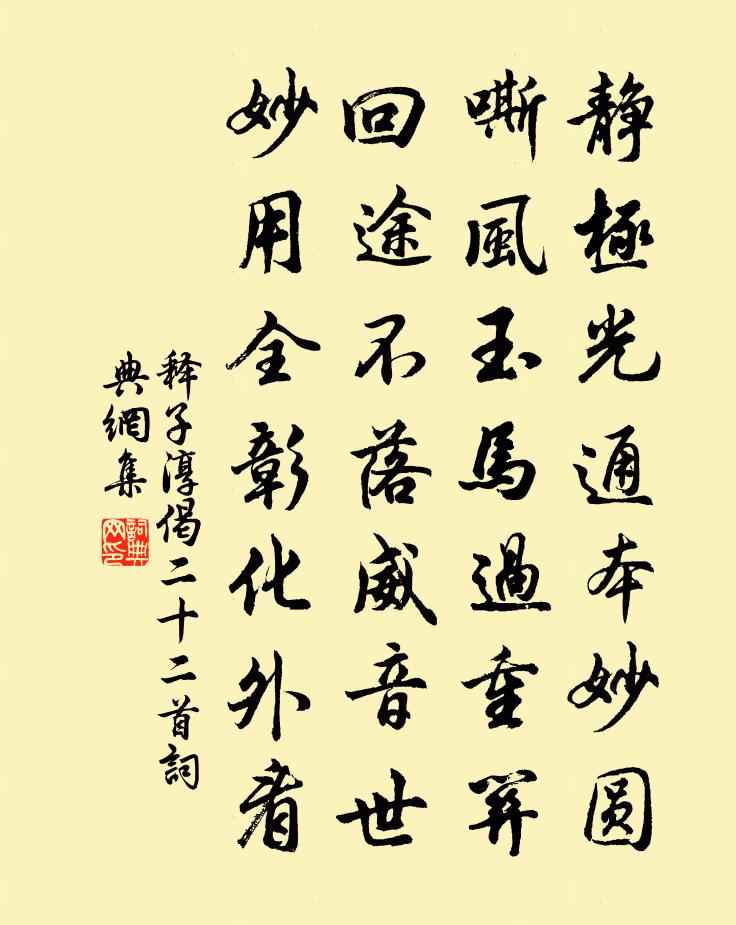 静極光通本妙圆
嘶風玉馬過重關
回途不落威音世
妙用全彰化外看
释子淳偈二十二首詞
典網集
詞典
网印